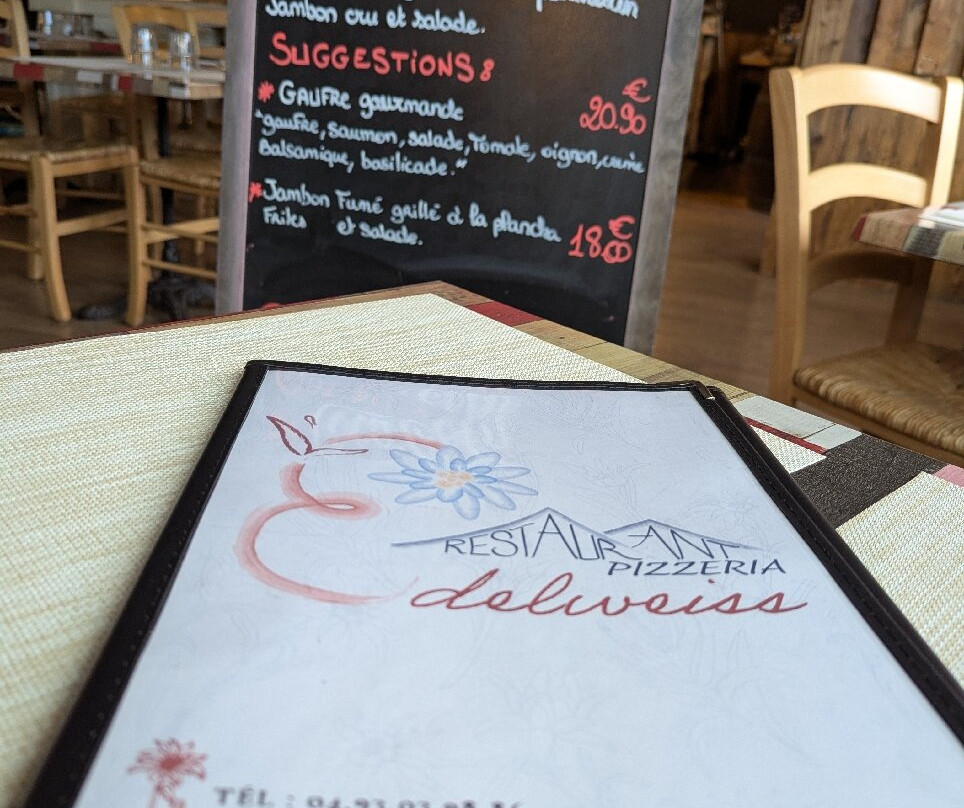 Jambon cru et salade.
SUGGESTIONS :
* GAUFRE gourmande 20.90 €
"gaufre, saumon, salade, Tomate, oignon,
Balsamique, basilicade."
* Jambon Fumé grillé à la plancha 18.00 €
Frites et salade.
RESTAURANT
PIZZERIA
Edelweiss
TÉL : 04 93 03